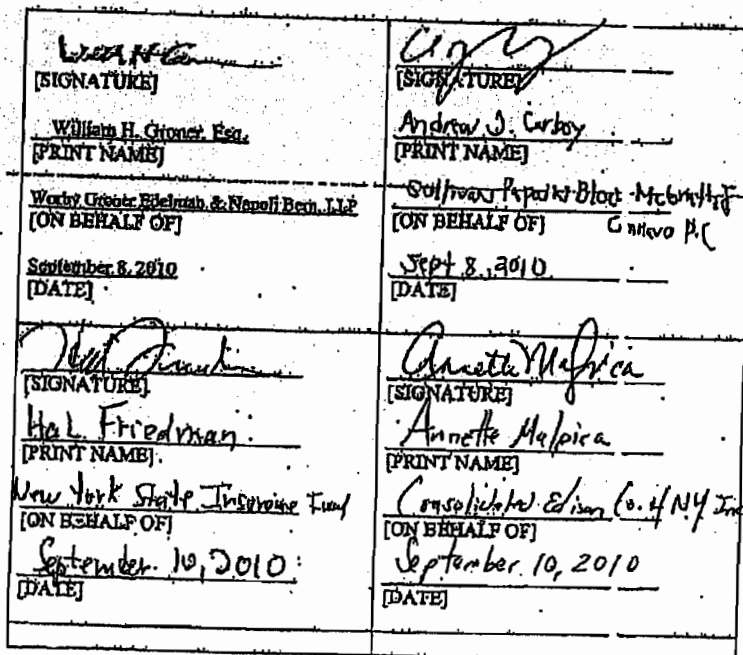 [SIGNATURE]
William H. Groner, Esq.
[PRINT NAME]
Worby Groner Edelman & Napoli Bern, LLP
[ON BEHALF OF]
September 8, 2010
[DATE]
[SIGNATURE]
Andrew J. Carboy
[PRINT NAME]
Sullivan Papain Block McGrath &
[ON BEHALF OF] Cannavo P.C
Sept 8, 2010
[DATE]
[SIGNATURE]
Hal Friedman
[PRINT NAME]
New York State Insurance Fund
[ON BEHALF OF]
September 10, 2010
[DATE]
Annette Malpica
[SIGNATURE]
Annette Malpica
[PRINT NAME]
Consolidated Edison Co. of NY Inc
[ON BEHALF OF]
September 10, 2010
[DATE]